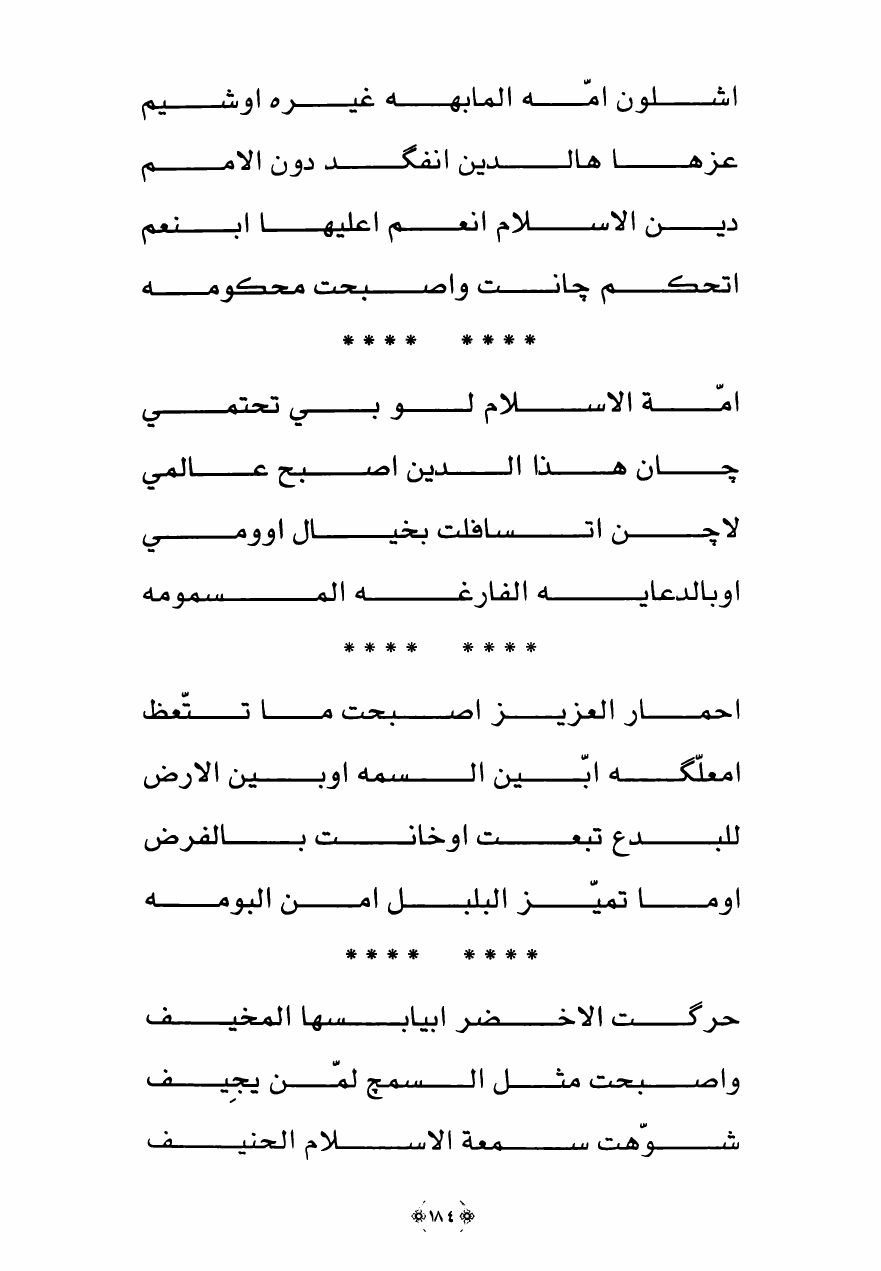 اشلون امّه المابهه غيره اوشيم
عزها هالدين انفگد دون الامم
دين الاسلام انعم اعليها ابنعم
اتحكم چانت واصبحت محكومه
**** ****
امّة الاسلام لو بي تحتمي
چان هذا الدين اصبح عالمي
لاچن اتسافلت بخيال اوومي
اوبالدعايه الفارغه المسمومه
**** ****
احمار العزيز اصبحت ما تتّعظ
امعلّگه ابّين السمه اوبين الارض
للبدع تبعت اوخانت بالفرض
اوما تميّز البلبل امن البومه
**** ****
حرگت الاخضر ابيابسها المخيف
واصبحت مثل السمچ لمّن يجِيف
شوّهت سمعة الاسلام الحنيف
١٨٤